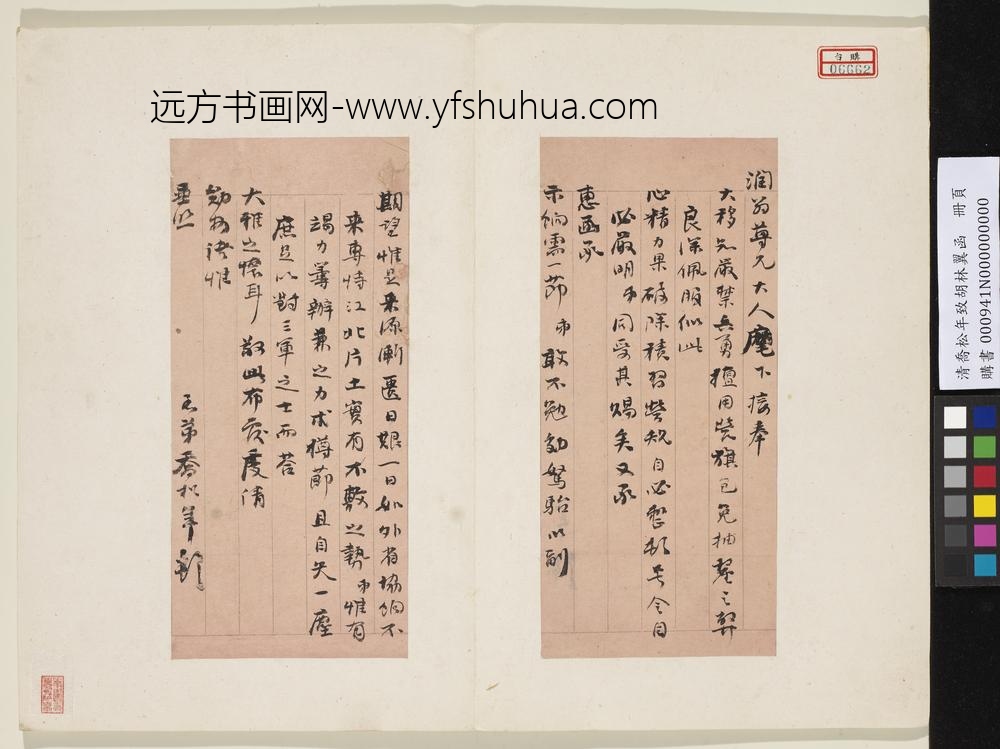 远方书画网-www.yfshuhua.com
自購
06662
润翁尊兄大人麾下接奉
大移知嚴禁兵勇擅用營旗包免抽釐之弊
良深佩服似此
心精力果破除積習營規自必整肅号令自
必嚴明弟同受其賜矣又承
惠函承
示餉需一節弟敢不勉効駑駘以副
期望惟是来源漸匱日艱一日如外省協餉不
来專恃江北片土實有不敷之勢弟惟有
竭力籌辦兼之力求樽節且自矢一塵
庶足以對三軍之士而答
大雅之懷耳敬此布復虔請
勛安諸惟
垂照
弟喬松年頓
清喬松年致胡林翼函 冊頁
購書 000941N000000000000